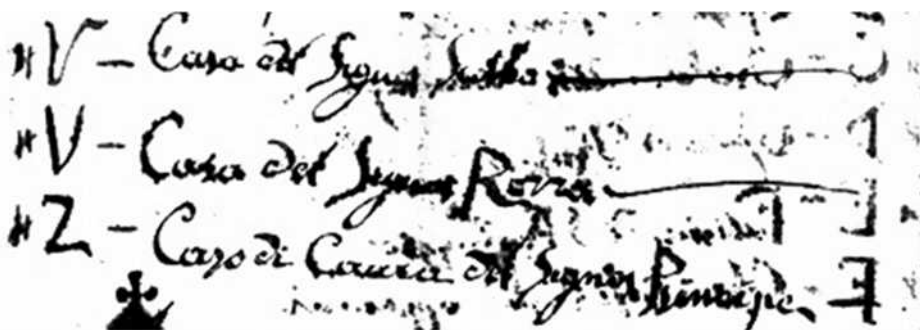 "V – Casa del Signor
"V – Casa del Signor Roma
"Z – Casa di Caccia del Signor Principe